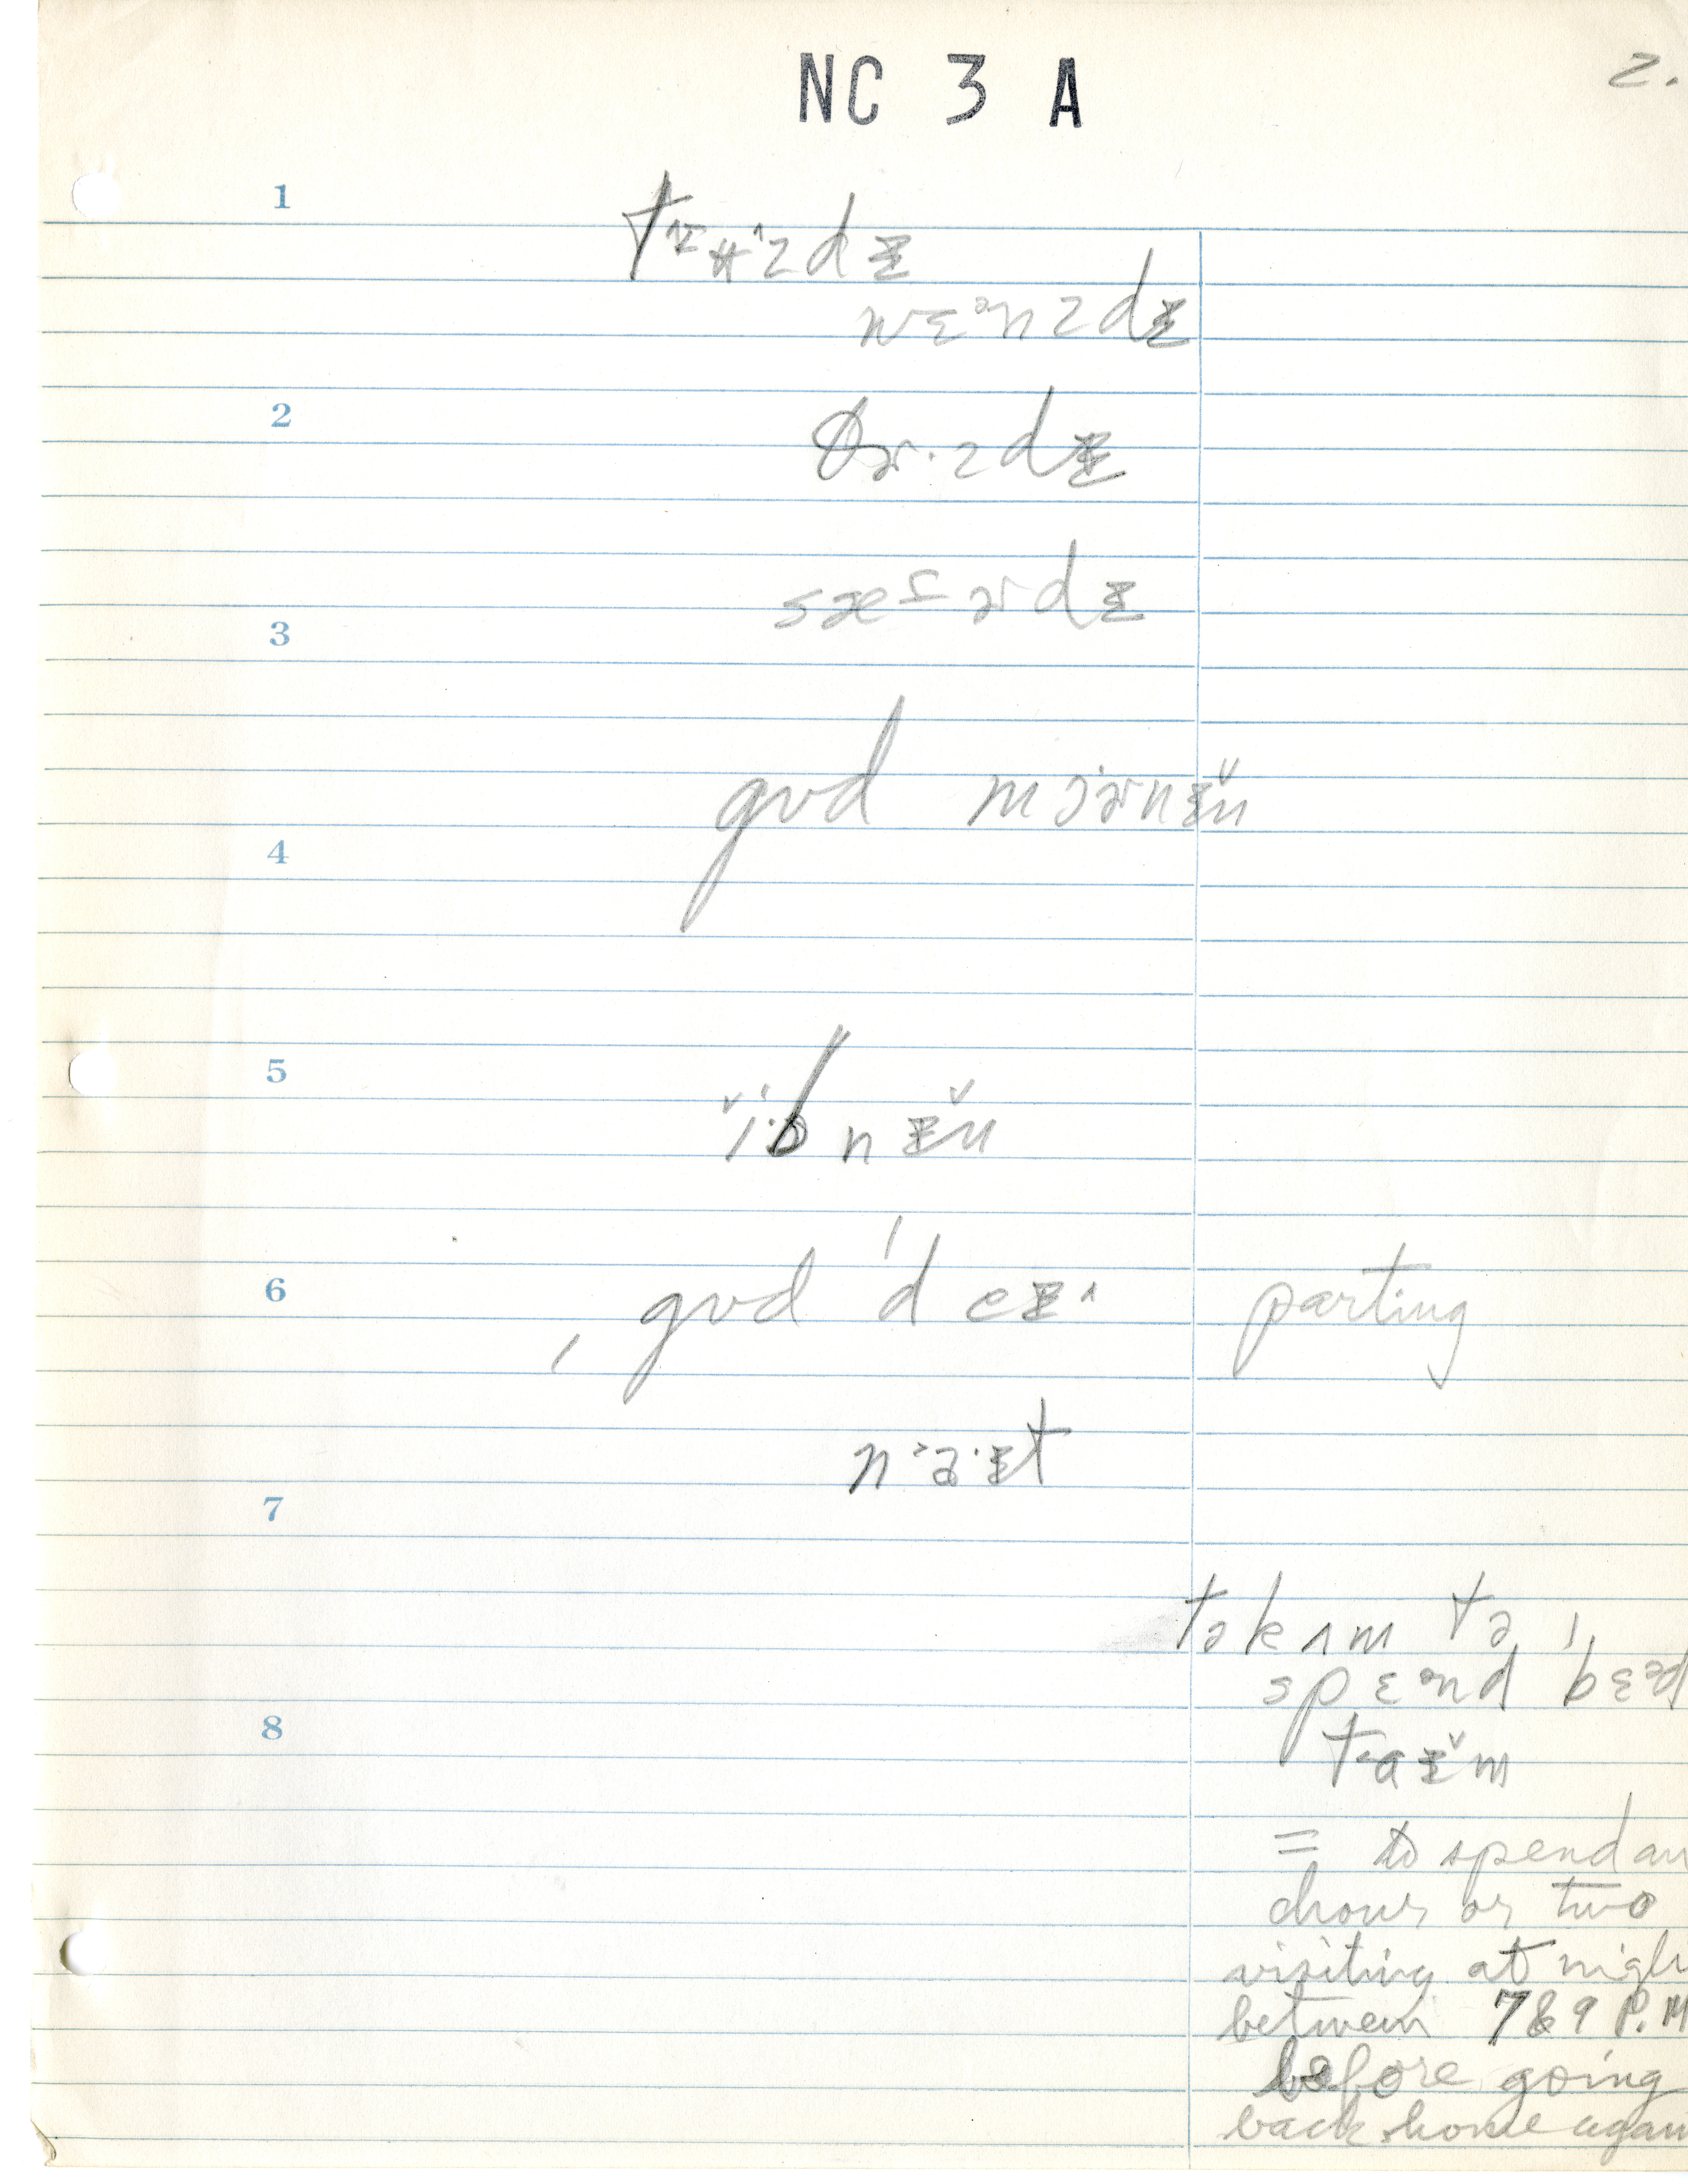 NC 3 A
2.
1
wɛᵊnzdɪ
2
θɚ·zdɪ
sæfɚdɪ
3
gʊd mɔɚnɪ̆n
4
5
i·bnɪ̆n
6
gʊd deɪ^ parting
na·ɪt
7
tə kʌm tə
spɛᵊnd bɛᵊd
8
taɪ̆m
= to spend an
hour or two
visiting at nigh
between 7 & 9 P.M
before going
back home again